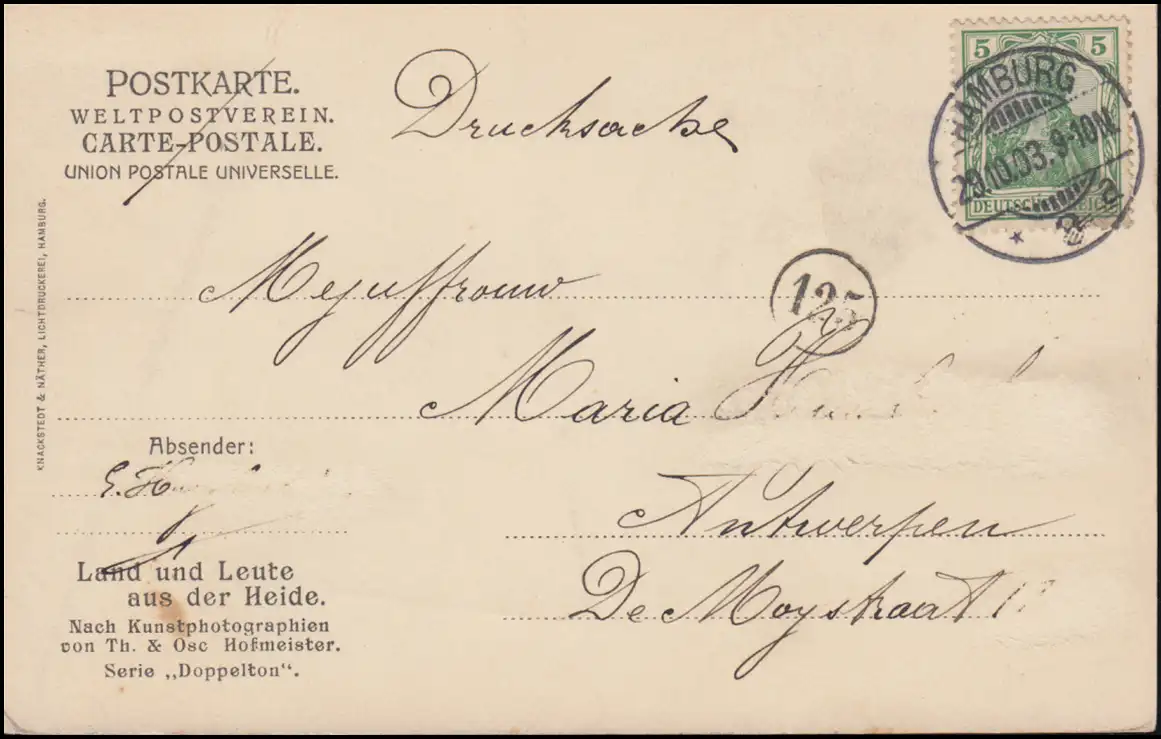 POSTKARTE.
WELTPOSTVEREIN.
CARTE-POSTALE.
UNION POSTALE UNIVERSELLE.
Drucksache
5 5
DEUTSCHES REICH
HAMBURG
29.10.03. 9-10N.
KNACKSTEDT & NÄTHER, LICHTDRUCKEREI, HAMBURG.
Mejuffrouw
125
Maria
Absender:
G. H
Antwerpen
De Moystraat
Land und Leute
aus der Heide.
Nach Kunstphotographien
von Th. & Osc Hofmeister.
Serie „Doppelton“.